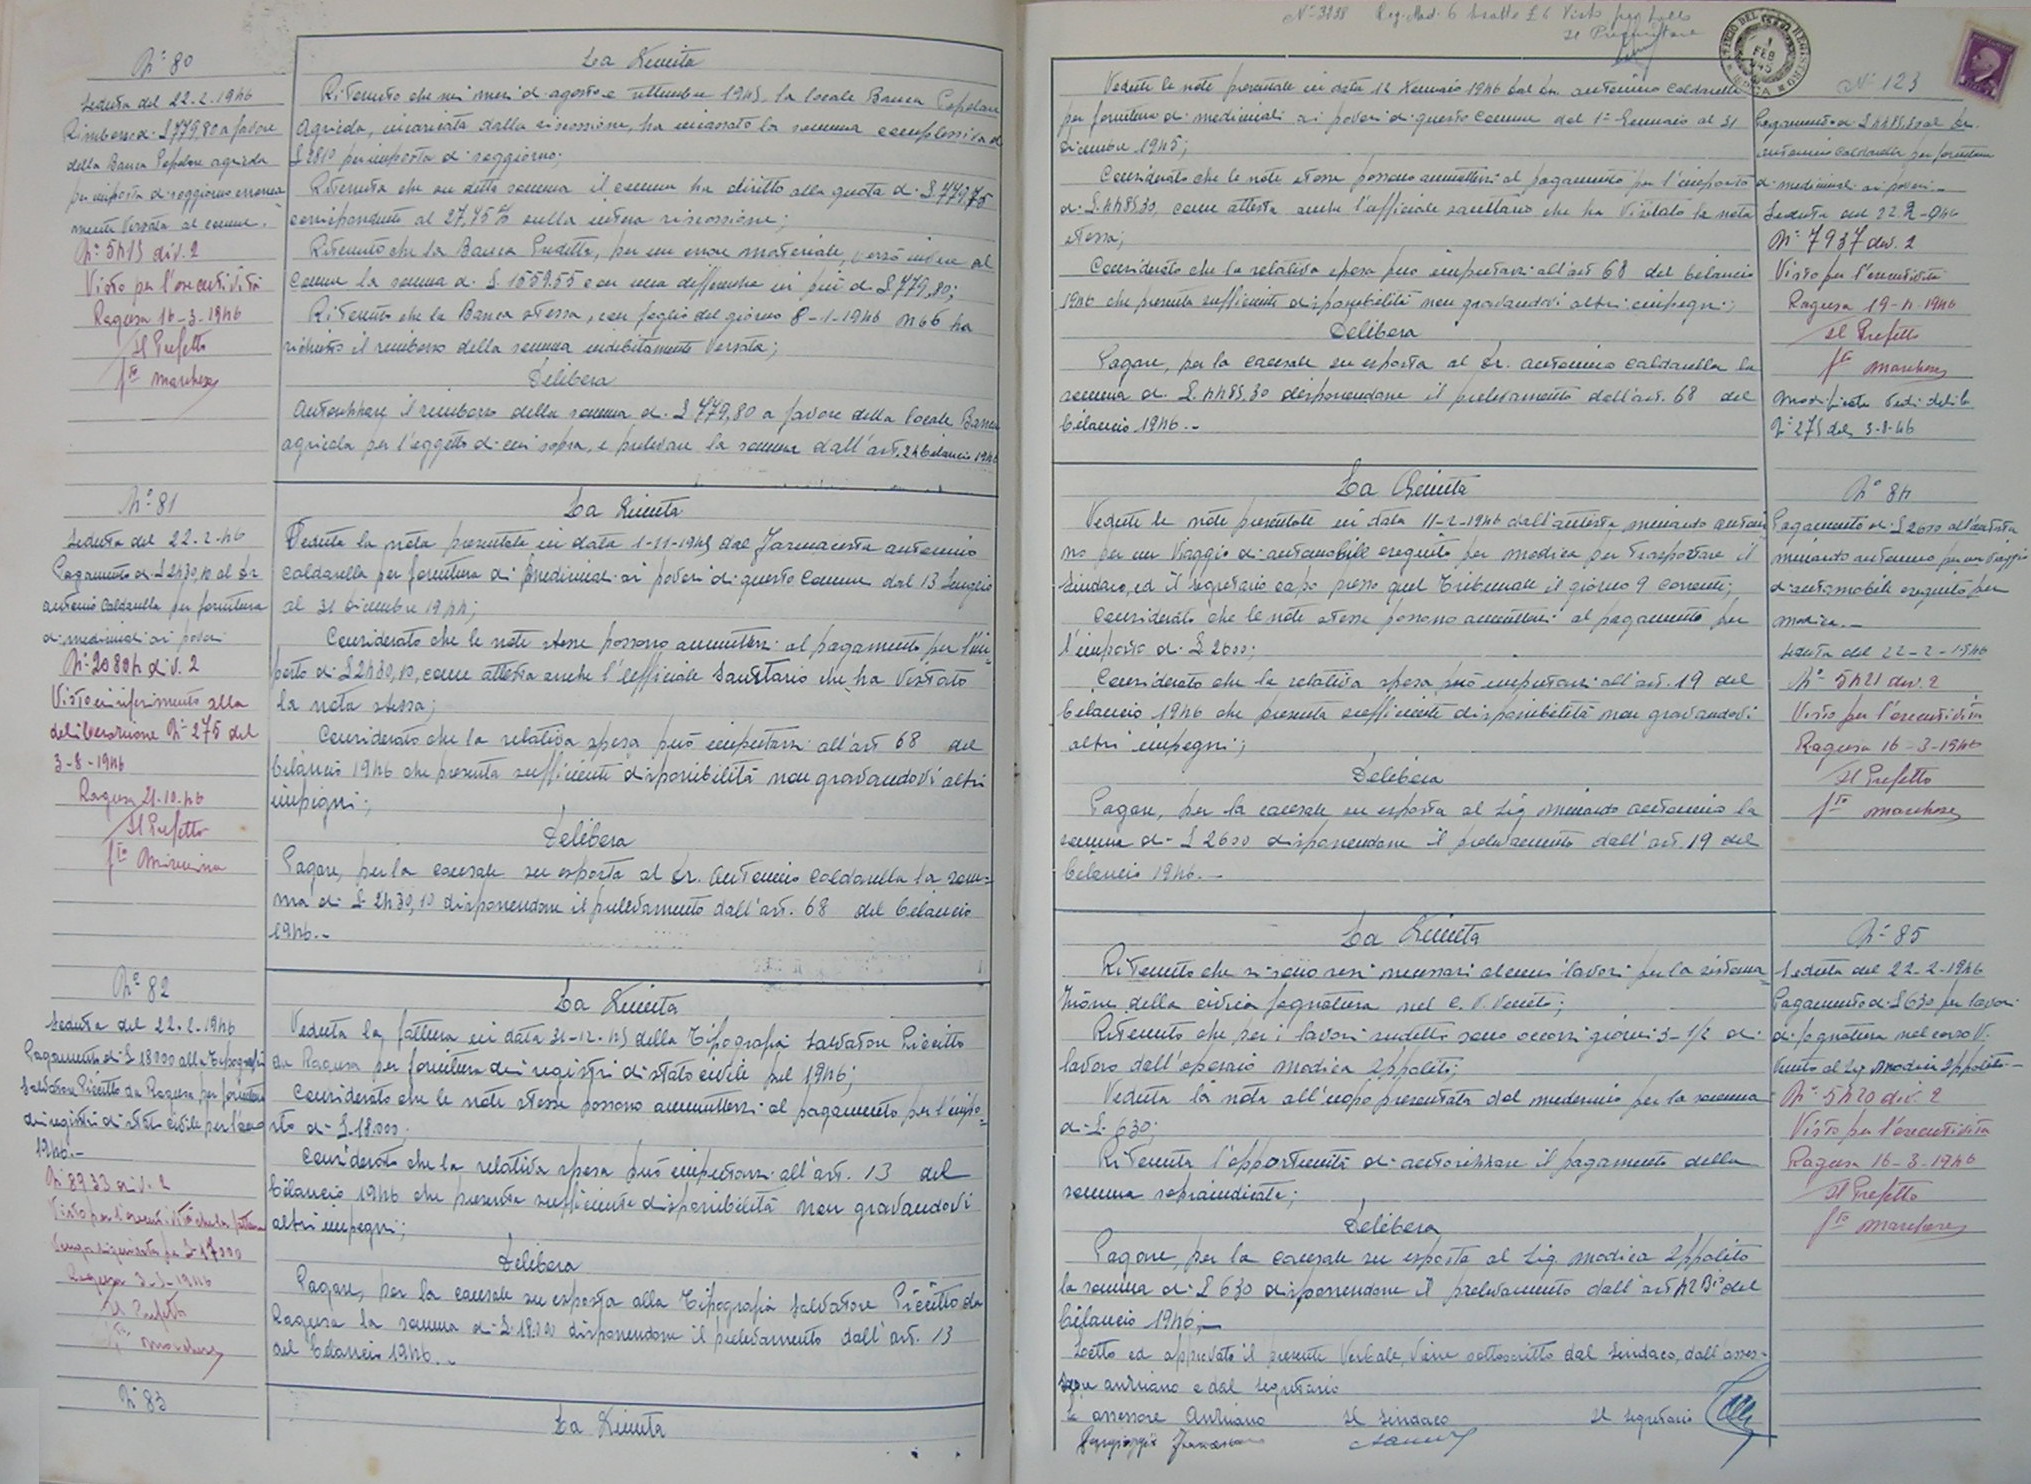 N° 80
La Giunta
Seduta del 22.2.1946
Rimborso di £ 779,80 a favore
della Banca Popolare agricola
per imposta di soggiorno erronea
mente versata al comune.
N° 5415 div. 2
Visto per l'esecutività
Ragusa 16-3-1946
Il Prefetto
fto Marchese
Ritenuto che nei mesi di agosto e settembre 1945 la locale Banca Popolare
Agricola, incaricata dalla riscossione, ha incassato la somma complessiva di
£ 2810 per imposta di soggiorno;
Ritenuta che su detta somma il comune ha diritto alla quota di £ 779,75
corrispondente al 27,75 % sulla intera riscossione;
Ritenuto che la Banca Predetta, per un errore materiale, versò invece al
Comune la somma di £ 1559.55 con una differenza in più di £ 779,80;
Ritenuto che la Banca stessa, con foglio del giorno 8-1-1946 n 66 ha
richiesto il rimborso della somma indebitamente versata;
Delibera
Autorizzare il rimborso della somma di £ 779,80 a favore della locale Banca
agricola per l'oggetto di cui sopra, e prelevare la somma dall'art. 24 bilancio 1946
N° 81
Seduta del 22.2.46
Pagamento di £ 2430,10 al Dr
Antonio Caldarella per fornitura
di medicinali ai poveri
N° 20804 div. 2
Visto in riferimento alla
deliberazione N° 275 del
3-8-1946
Ragusa 21.10.46
Il Prefetto
fto
La Giunta
Veduta la nota presentata in data 1-11-1945 dal Farmacista Antonino
Caldarella per fornitura di medicinali ai poveri di questo Comune dal 13 Luglio
al 31 Dicembre 1944;
Considerato che le note stesse possono ammettersi al pagamento per l'im-
porto di £ 2430,10, come attesta anche l'Ufficiale Sanitario che ha Vistato
la nota stessa;
Considerato che la relativa spesa può imputarsi all'art 68 del
bilancio 1946 che presenta sufficiente disponibilità non gravandovi altri
impegni;
Delibera
Pagare, per la causale su esposta al Dr. Antonino Caldarella la som=
ma di £ 2430,10 disponendone il prelevamento dall'art. 68 del bilancio
1946.-
N° 82
Seduta del 22.2.1946
Pagamento di £ 18000 alla Tipografia
Salvatore Piccitto da Ragusa per fornitura
dei registri di stato civile per l'anno
1946.-
N° 8933 div. 2
Visto per l'esecutività che la fattura
venga liquidata per £ 17000
Ragusa 3-5-1946
Il Prefetto
fto Marchese
La Giunta
Veduta la fattura in data 31-12.45 della Tipografia Salvatore Piccitto
da Ragusa per fornitura dei registri di stato civile pel 1946;
Considerato che le note stesse possono ammettersi al pagamento per l'impo=
rto di £ 18.000;
Considerato che la relativa spesa può imputarsi all'art. 13 del
bilancio 1946 che presenta sufficiente disponibilità non gravandovi
altri impegni;
Delibera
Pagare, per la causale su esposta alla Tipografia Salvatore Piccitto da
Ragusa la somma di £ 18.000 disponendone il prelevamento dall'art. 13
del bilancio 1946.-
N° 83
La Giunta
N° 3138 Reg. Mod. 6 tratte £ 6 Visto per bollo
Il Procuratore
N° 123
Vedute le note presentate in data 12 Gennaio 1946 dal Dr. Antonino Caldarella
per fornitura di medicinali ai poveri di questo Comune dal 1° Gennaio al 31
Dicembre 1945;
Considerato che le note stesse possono ammettersi al pagamento per l'importo
di £ 4485,30, come attesta anche l'ufficiale sanitario che ha Vistato la nota
stessa;
Considerato che la relativa spesa può imputarsi all'art 68 del bilancio
1946 che presenta sufficiente disponibilità non gravandovi altri impegni;
Delibera
Pagare, per la causale su esposta al Dr. Antonino Caldarella la
somma di £ 4485,30 disponendone il prelevamento dall'art. 68 del
bilancio 1946.-
Pagamento di £ 4485,30 al Dr.
Antonino Caldarella per fornitura
di medicinali ai poveri.-
Seduta del 22.2-946
N° 7937 div. 2
Visto per l'esecutività
Ragusa 19-4-1946
Il Prefetto
fto Marchese
Modificata vedi delib
N° 275 del 3-8-46
La Giunta
Vedute le note presentate in data 11-2-1946 dall'autista Minardo Antoni
no per un Viaggio di automobile eseguito per Modica per trasportare il
Sindaco, ed il Segretario capo presso quel Tribunale il giorno 9 corrente;
Considerato che le note stesse possono ammettersi al pagamento per
l'importo di £ 2600;
Considerato che la relativa spesa può imputarsi all'art. 19 del
bilancio 1946 che presenta sufficiente disponibilità non gravandovi
altri impegni;
Delibera
Pagare, per la causale su esposta al Sig Minardo Antonino la
somma di £ 2600 disponendone il prelevamento dall'art. 19 del
bilancio 1946.-
N° 84
Pagamento di £ 2600 all'autista
Minardo Antonino per un viaggio
di automobile eseguito per
Modica.-
Seduta del 22-2-1946
N° 5421 div. 2
Visto per l'esecutività
Ragusa 16-3-1946
Il Prefetto
fto Marchese
La Giunta
Ritenuto che si sono resi necessari alcuni lavori per la sistema=
zione della civica fognatura nel C. V. Veneto;
Ritenuto che per i lavori sudetti sono occorsi giorni 3-1/2 di
lavoro dall'operaio Modica Ippolito;
Veduta la nota all'uopo presentata dal medesimo per la somma
di £ 630;
Ritenuta l'opportunità di autorizzare il pagamento della
somma sopraindicata;
Delibera
Pagare, per la causale su esposta al Sig. Modica Ippolito
la somma di £ 630 disponendone il prelevamento dall'art 42 Bis del
bilancio 1946.-
Letto ed approvato il presente Verbale, viene sottoscritto dal Sindaco, dall'asses-
sore anziano e dal segretario
L'assessore Anziano Il Sindaco Il Segretario
N° 85
Seduta del 22-2-1946
Pagamento di £ 630 per lavori
di fognatura nel corso V.
Veneto al Sig Modica Ippolito.-
N° 5420 div. 2
Visto per l'esecutività
Ragusa 16-3-1946
Il Prefetto
fto Marchese